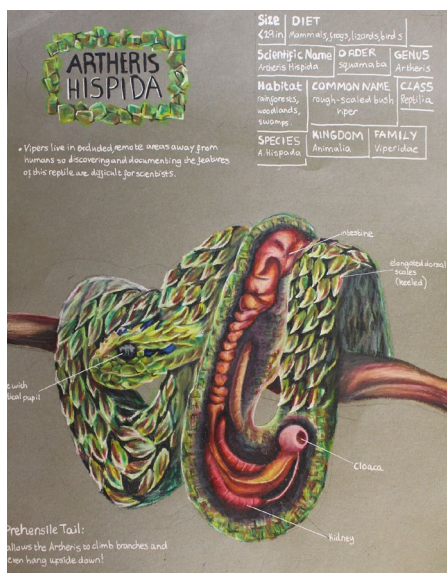 ARTHERIS
HISPIDA
Size
≤29in
DIET
Mammals, frogs, lizards, birds
Scientific Name
Artheris Hispida
ORDER
Squamata
GENUS
Artheris
Habitat
rainforests,
woodlands,
swamps
COMMON NAME
rough-scaled bush
viper
CLASS
Reptilia
SPECIES
A. Hispada
KINGDOM
Animalia
FAMILY
Viperidae
• Vipers live in secluded, remote areas away from
humans so discovering and documenting the features
of this reptile are difficult for scientists.
intestine
elongated dorsal
scales
(keeled)
with
pupil
cloaca
kidney
Prehensile Tail:
allows the Artheris to climb branches and
even hang upside down!